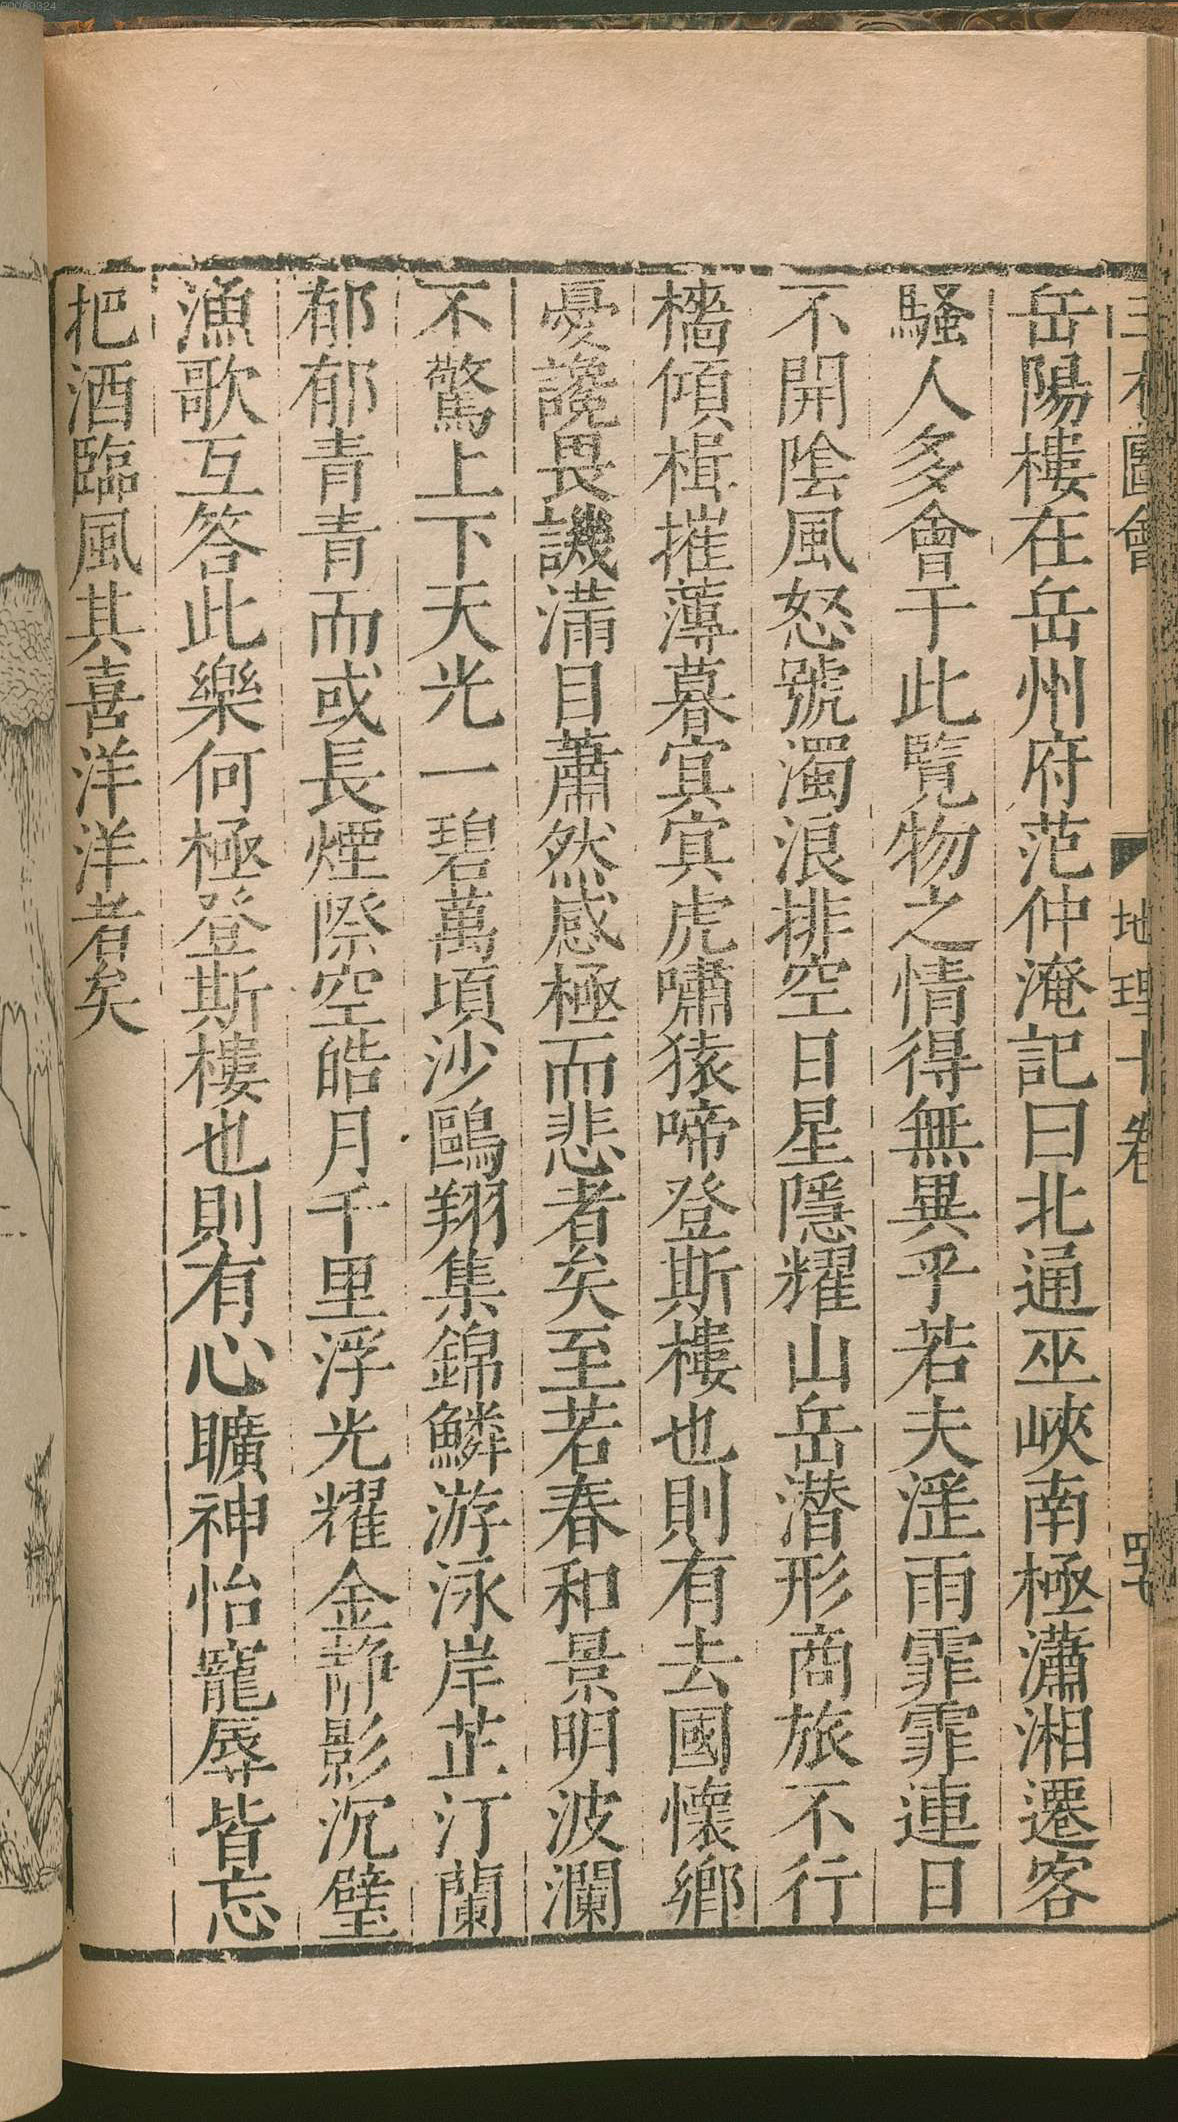 三才圖會
地理十卷
岳陽樓在岳州府范仲淹記曰北通巫峽南極瀟湘遷客
騷人多會于此覽物之情得無異乎若夫淫雨霏霏連日
不開陰風怒號濁浪排空日星隱耀山岳潛形商旅不行
檣傾楫摧薄暮㝠㝠虎嘯猿啼登斯樓也則有去國懷鄉
憂讒畏譏滿目蕭然感極而悲者矣至若春和景明波瀾
不驚上下天光一碧萬頃沙鷗翔集錦鱗游泳岸芷汀蘭
郁郁青青而或長煙際空皓月千里浮光耀金静影沉璧
漁歌互答此樂何極登斯樓也則有心曠神怡寵辱皆忘
把酒臨風其喜洋洋者矣